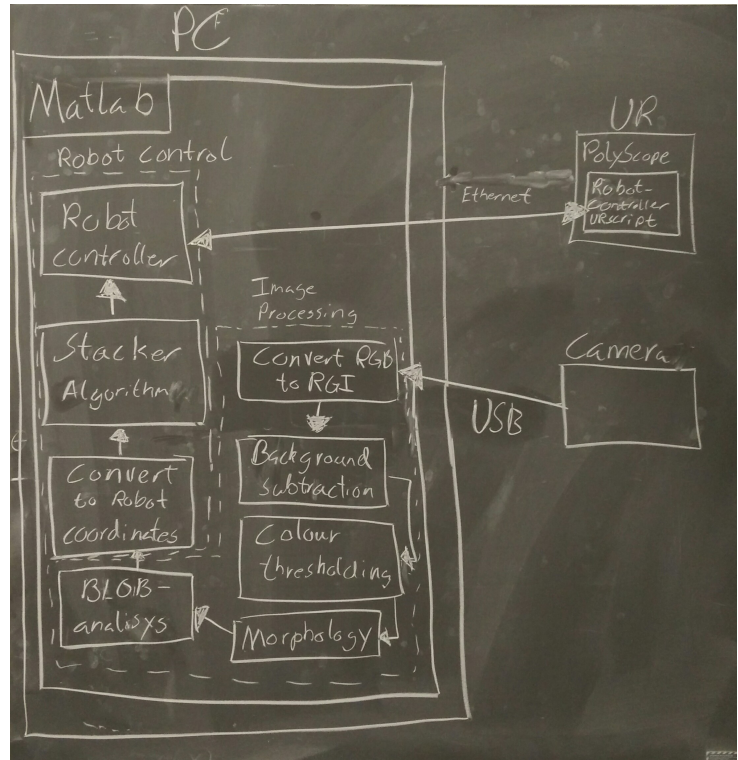 PC
Matlab
Robot Control
Robot
Controller
Stacker
Algorithm
Convert
to Robot
coordinates
BLOB-
analisys
Image
Processing
Convert RGB
to RGI
Background
subtraction
Colour
thresholding
Morphology
Ethernet
USB
UR
PolyScope
Robot-
Controller
URscript
Camera